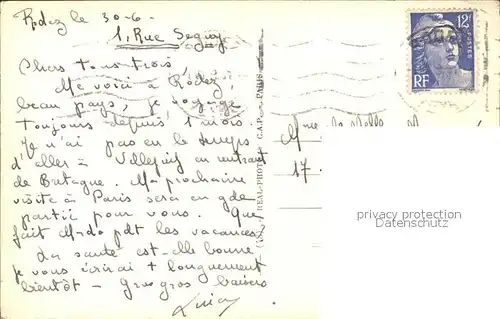 Rodez le 30-6-
1, Rue Séguy
Chers tous trois,
Me voici à Rodez,
beau pays, je voyage
toujours depuis 1 mois.
Je n'ai pas eu le temps
d'aller à Villejuif en rentrant
de Bretagne. Ma prochaine
visite à Paris sera en gde
partie pour vous. Que
fait M-do pdt les vacances
sa santé est-elle bonne
je vous écrirai + longuement
bientôt - Gros gros baisers
12F
POSTES
RF
REAL-PHOTO
C.A.P.
PARIS
Mme
17
privacy protection
Datenschutz